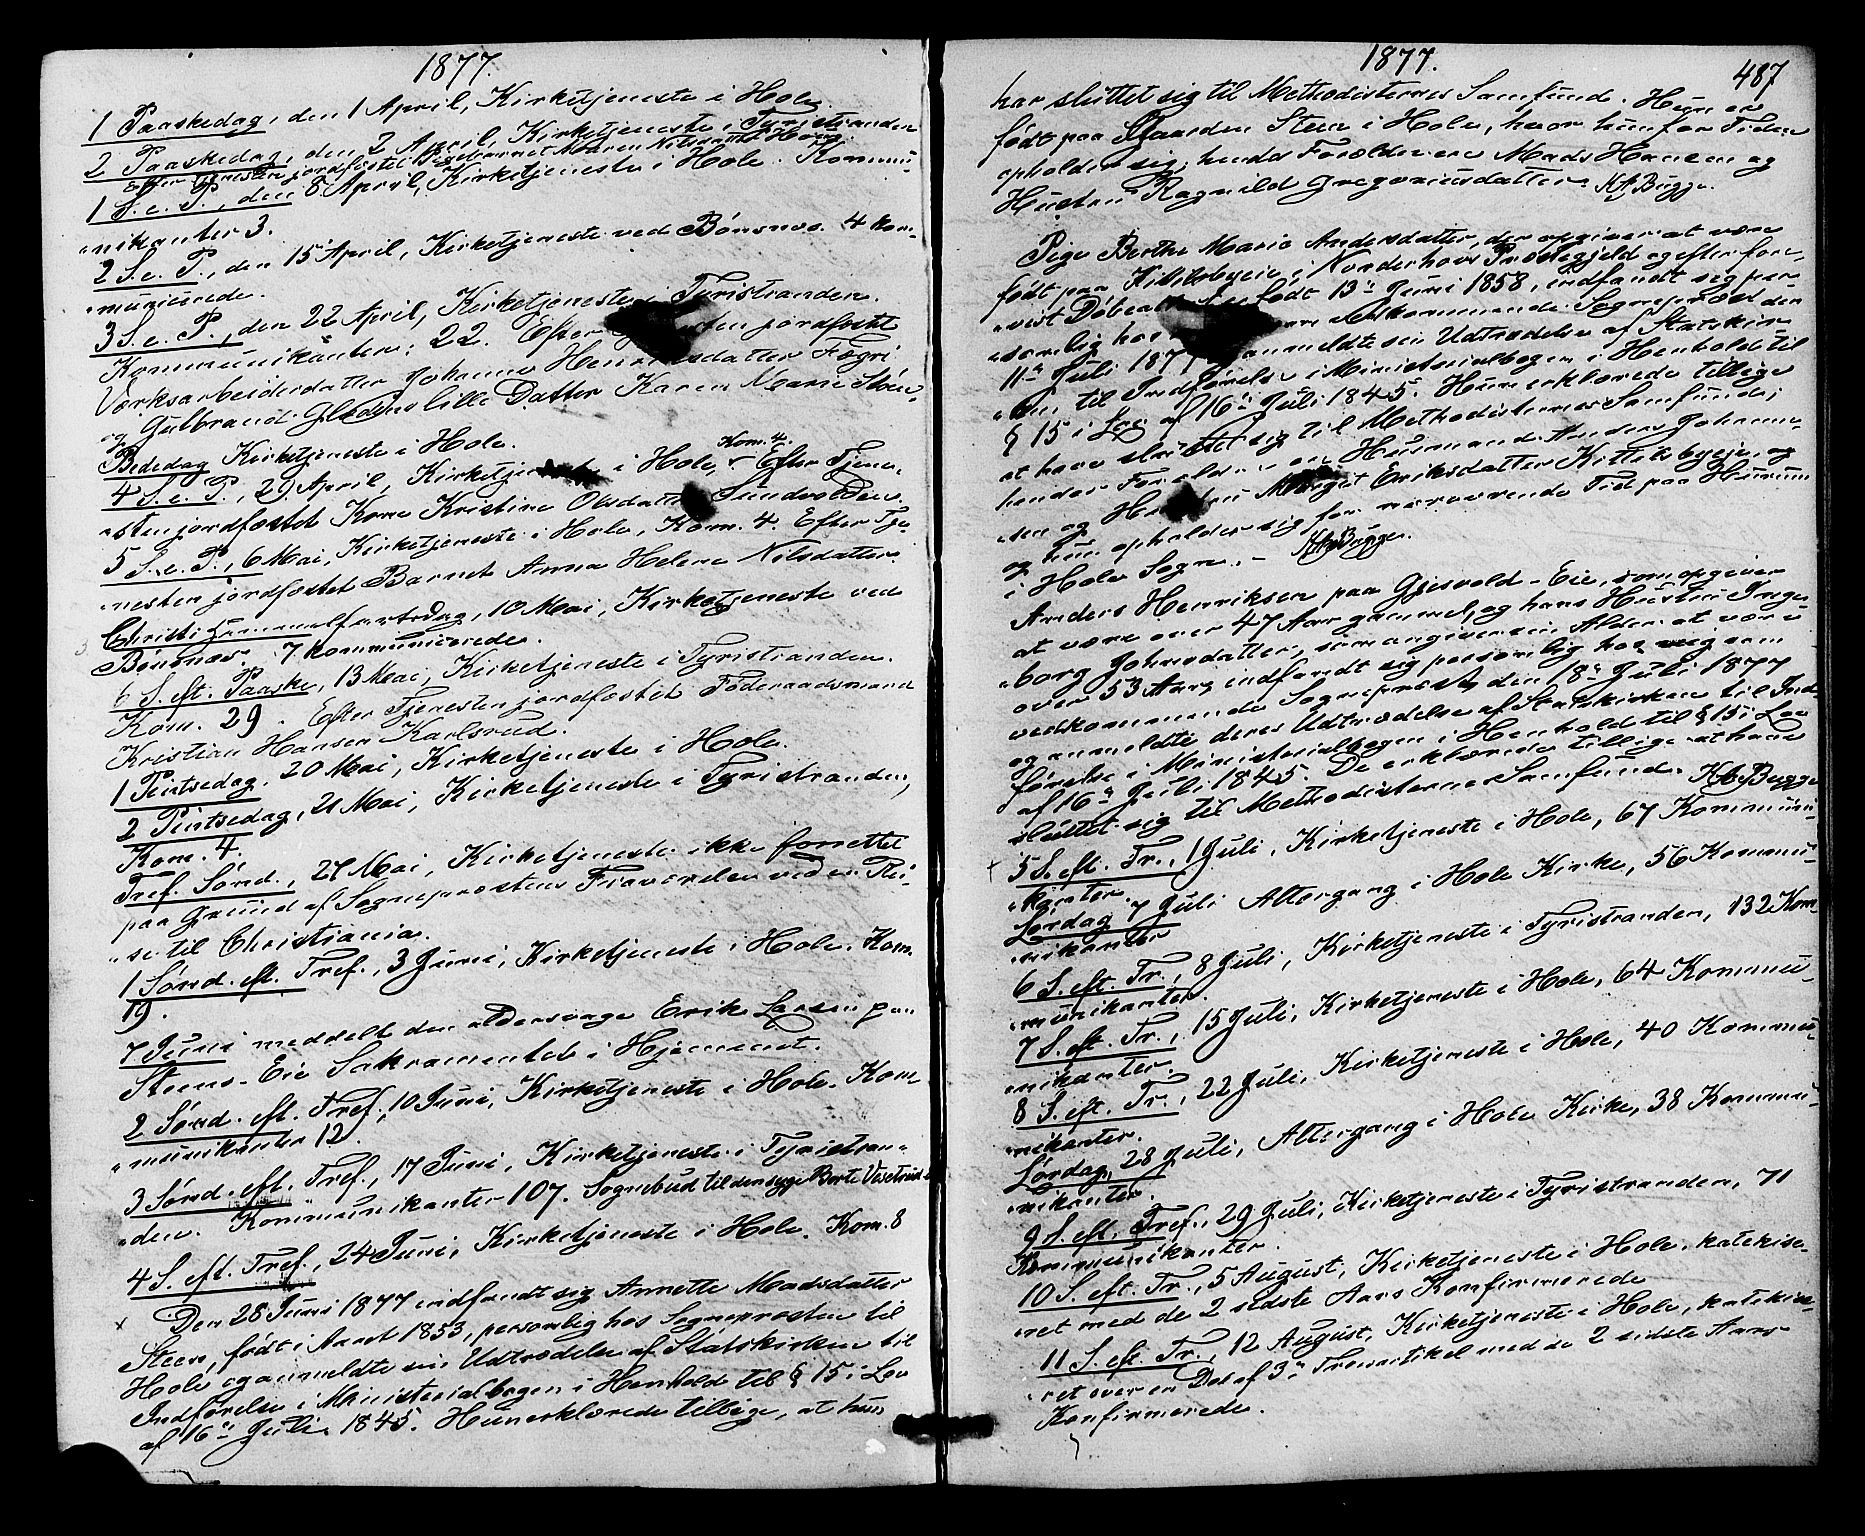 1877.
1 Paaskedag, den 1 April, Kirketjeneste i Hole.
2 Paaskedag, den 2 April, Kirketjeneste i Tyristranden
Efter Tjenesten jordfæstet Pigebarnet Maren Nilsdatter
1 S. e. P., den 8 April, Kirketjeneste i Hole. Kommu-
„nikanter 3.
2 S. e. P., den 15 April, Kirketjeneste ved Bønsnæs. 4 kom-
„municerede.
3 S. e. P., den 22 April, Kirketjeneste i Tyristranden.
Kommunikanter: 22. Efter Tjenesten jordfæstet
Værksarbeiderdatter Johanne Henriksdatter Fægri
og Gulbrand Gledens lille Datter Karen Marie Støen
Bededag Kirketjeneste i Hole.
4 S. e. P., 29 April, Kirketjeneste i Hole, Kom. 4. Efter Tjene-
„sten jordfæstet Kone Kristine Olsdatter Sundvolden.
5 S. e. P., 6 Mai, Kirketjeneste i Hole, Kom. 4. Efter Tje-
„nesten jordfæstet Barnet Anna Helene Nilsdatter.
Christi Himmelfartsdag, 10 Mai, Kirketjeneste ved
Bønsnæs. 7 kommunicerede.
6 S. eft. Paaske, 13 Mai, Kirketjeneste i Tyristranden.
Kom. 29. Efter Tjenesten jordfæstet Føderaadsmand
Kristian Hansen Karlsrud.
1 Pintsedag, 20 Mai, Kirketjeneste i Hole.
2 Pintsedag, 21 Mai, Kirketjeneste i Tyristranden,
Kom. 4.
Tref. Sønd., 27 Mai, Kirketjeneste ikke forrettet
paa Grund af Sognepræstens Fraværelse ved en Rei-
„se til Christiania.
1 Sønd. eft. Tref., 3 Juni, Kirketjeneste i Hole. Kom.
19.
7 Juni meddelt den aldersvage Erik Larsen paa
Steens-Eie Sakramentet i Hjemmet.
2 Sønd. eft. Tref., 10 Juni, Kirketjeneste i Hole. Kom-
„munikanter 12.
3 Sønd. eft. Tref., 17 Juni, Kirketjeneste i Tyristran-
„den. Kommunikanter 107. Sognebud til den syge Berte Vesetrud
4 S. eft. Tref., 24 Juni, Kirketjeneste i Hole. Kom. 8
x Den 28 Juni 1877 indfandt sig Annette Madsdatter
Steen, født i Aaret 1853, personlig hos Sognepræsten til
Hole og anmeldte sin Udtrædelse af Statskirken til
Indførelse i Ministerialbogen i Henhold til § 15 i Lov
af 16de Juli 1845. Hun erklærede tillige, at hun
1877.
487
har sluttet sig til Methodisternes Samfund. Hun er
født paa Gaarden Steen i Hole, hvor hun for Tiden
opholder sig; hendes Forældre ere Mads Hansen og
Hustru Ragnild Gregoriusdatter. KA Bugge.
Pige Berthe Marie Andersdatter, der opgiver at være
født paa Kittilsbyeie i Norderhovs Præstegjeld og efter fore-
„vist Døbeattest født 13de Juni 1858, indfandt sig per-
„sonlig hos vedkommende Sognepræst den
11te Juli 1877 og anmeldte sin Udtrædelse af Statskir-
„ken til Indførelse i Ministerialbogen i Henhold til
§ 15 i Lov af 16de Juli 1845. Hun erklærede tillige
at have sluttet sig til Methodisternes Samfund;
hendes Forældre ere Husmand Anders Johanne-
„sen og Hustru Marget Eriksdatter Kittilsbyeie, og
og hun opholder sig for nærværende Tid paa Hurum
i Hole Sogn. – KA Bugge.
Anders Henriksen paa Gjesvold-Eie, som opgiver
at være over 47 Aar gammel, og hans Hustru Inge-
„borg Johnsdatter, som angiver sin Alder at være
over 53 Aar, indfandt sig personlig hos mig som
vedkommende Sognepræst den 18de Juli 1877
og anmeldte deres Udtrædelse af Statskirken til Ind-
førelse i Ministerialbogen i Henhold til § 15 i Lov
af 16de Juli 1845. De erklærede tillige at have
sluttet sig til Methodisternes Samfund. KA Bugge
x 5 S. eft. Tr., 1 Juli, Kirketjeneste i Hole, 67 Kommuni-
„kanter.
Lørdag 7 Juli Altergang i Hole Kirke, 56 Kommu-
„nikanter
6 S. eft. Tr., 8 Juli, Kirketjeneste i Tyristranden, 132 Kom-
„munikanter.
7 S. eft. Tr., 15 Juli, Kirketjeneste i Hole, 64 Kommu-
„nikanter.
8 S. eft. Tr., 22 Juli, Kirketjeneste i Hole, 40 Kommu-
„nikanter.
Lørdag, 28 Juli, Altergang i Hole Kirke, 38 Kommu-
„nikanter.
9 S. eft. Tref., 29 Juli, Kirketjeneste i Tyristranden, 71
Kommunikanter.
10 S. eft. Tr., 5 August, Kirketjeneste i Hole, katekise-
„ret med de 2 sidste Aars Konfirmerede
11 S. eft. Tr., 12 August, Kirketjeneste i Hole, katekise-
„ret over en Del af 3die Troesartikel med de 2 sidste Aars
Konfirmerede.